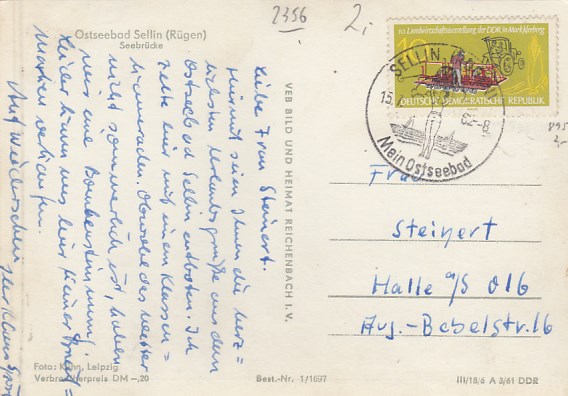 2356
2,-
Ostseebad Sellin (Rügen)
Seebrücke
Liebe Frau Steinert.
Hiermit seien Ihnen die herz=
lichsten Urlaubsgrüße aus dem
Ostseebad Sellin entboten. Ich
zelte hier mit einem Klassen=
kameraden. Obwohl das Wetter
nicht sommerlich ist, haben
wir eine Bombenstimmung!
Leider kann uns hier keiner
Marken verkaufen.
Auf Wiedersehen
Ihr Klaus
VEB BILD UND HEIMAT REICHENBACH I. V.
10. Landwirtschaftsausstellung der DDR in Markkleeberg
10
DEUTSCHE DEMOKRATISCHE REPUBLIK
SELLIN
15.
62-8
Mein Ostseebad
895
2,-
Frau
Steinert
Halle a/S 016
Aug.-Bebelstr. 16
Foto: Kühn, Leipzig
Verbraucherpreis DM -,20
Best.-Nr. 1/1697
III/18/6 A 3/61 DDR